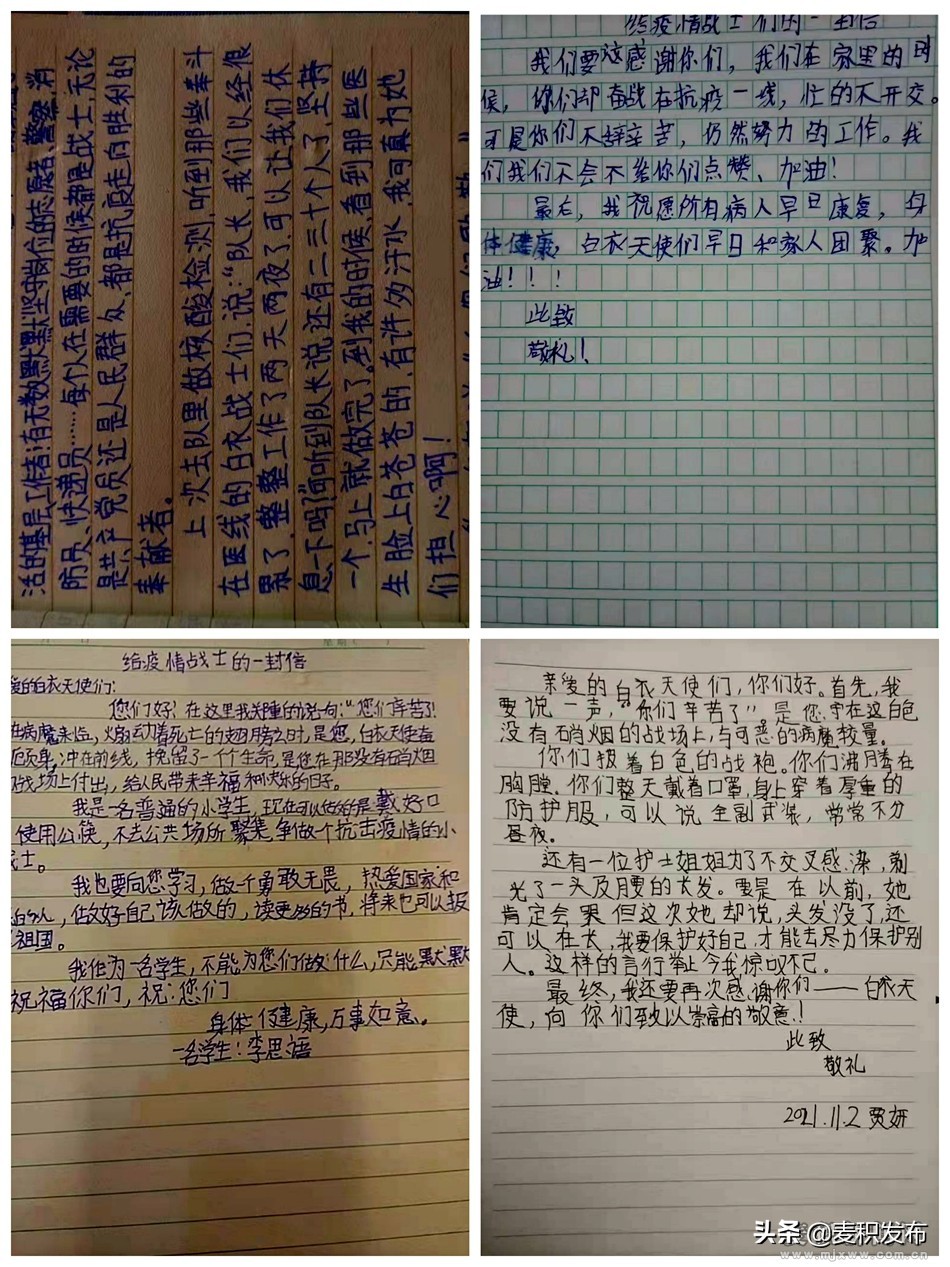 活的基层工作者,有无数默默坚守岗位的志愿者、警察、消
防员、快递员……每个人在需要的时候都是战士,无论
是共产党员还是人民群众,都是抗疫走向胜利的
奉献者。
上次去队里做核酸检测,听到那些奋斗
在医线的白衣战士们,说:“队长,我们以经很
累了,整整工作了两天两夜了,可以让我们休
息一下吗”可听到队长说还有二三十个人了,坚持
一个,马上就做完了。到我的时候,看到那些医
生脸上白苍苍的,有许多汗水,我可真为她
们担心啊!
给疫情战士们的一封信
我们要这感谢你们,我们在家里的时
候,你们却奋战在抗疫一线,忙的不开交。
可是你们不辞辛苦,仍然努力的工作。我
们我们不会不给你们点赞、加油!
最后,我祝愿所有病人早日康复,身
体健康,白衣天使们早日和家人团聚。加
油!!!
此致
敬礼!
给疫情战士的一封信
爱的白衣天使们:
您们好!在这里我郑重的说一句:“您们辛苦了!
在病魔来临,火扇动着死亡的翅膀之时,是您,白衣天使奋
顾身,冲在前线,挽留了一个个生命,是您在那没有硝烟
战场上付出,给人民带来幸福和快乐的日子。
我是一名普通的小学生,现在可以做的是:戴好口
使用公筷,不去公共场所聚集,争做一个抗击疫情的小
士。
我也要向您学习,做一个勇敢无畏,热爱国家和
的人,做好自己该做的,读更多的书,将来也可以报
祖国。
我作为一名学生,不能为您们做什么,只能默默
祝福你们,祝:您们
身体健康,万事如意。
一名学生:李思语
亲爱的白衣天使们,你们好。首先,我
要说一声,“你们辛苦了”。是您,守在这白色
没有硝烟的战场上,与可恶的病魔较量。
你们披着白色的战袍。你们沸腾在
胸膛。你们整天戴着口罩,身上穿着厚重的
防护服,可以说全副武装,常常不分
昼夜。
还有一位护士姐姐为了不交叉感染,剃
光了一头及腰的长发。要是在以前,她
肯定会哭但这次她却说,头发没了,还
可以在长,我要保护好自己,才能去尽力保护别
人。这样的言行举止令我惊叹不已。
最终,我还要再次感谢你们——白衣天
使,向你们致以崇高的敬意!
此致
敬礼
2021.11.2 贾妍
头条@麦积发布
www.mjxww.com.cn